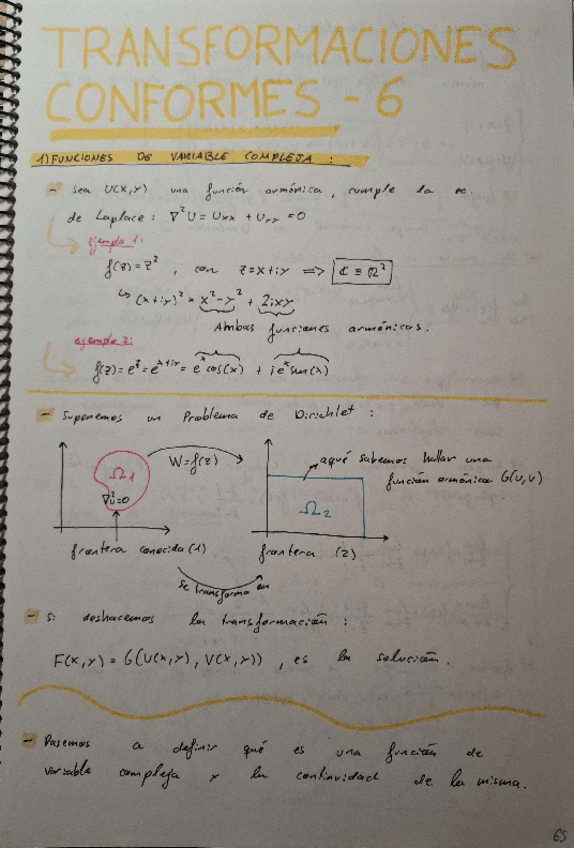 TRANSFORMACIONES
CONFORMES - 6
1) FUNCIONES DE VARIABLE COMPLEJA :
- Sea U(x,y) una función armónica, cumple la ec.
de Laplace : ∇²U = Uxx + Uyy = 0
ejemplo 1:
f(z) = z² , con z = x+iy => ℂ ≡ ℝ²
↳ (x+iy)² = x² - y² + 2ixy
Ambas funciones armónicas.
ejemplo 2:
f(z) = e^z = e^(x+iy) = e^x cos(x) + i e^x sen(x)
- Suponemos un Problema de Dirichlet :
Ω1
∇²u=0
W = f(z)
aquí sabemos hallar una
función armónica G(U,V)
Ω2
frontera conocida (1)
frontera (2)
se transforma en
- Si deshacemos la transformación :
F(x,y) = G(U(x,y), V(x,y)) , es la solución.
- Pasemos a definir qué es una función de
variable compleja y la continuidad de la misma.
65